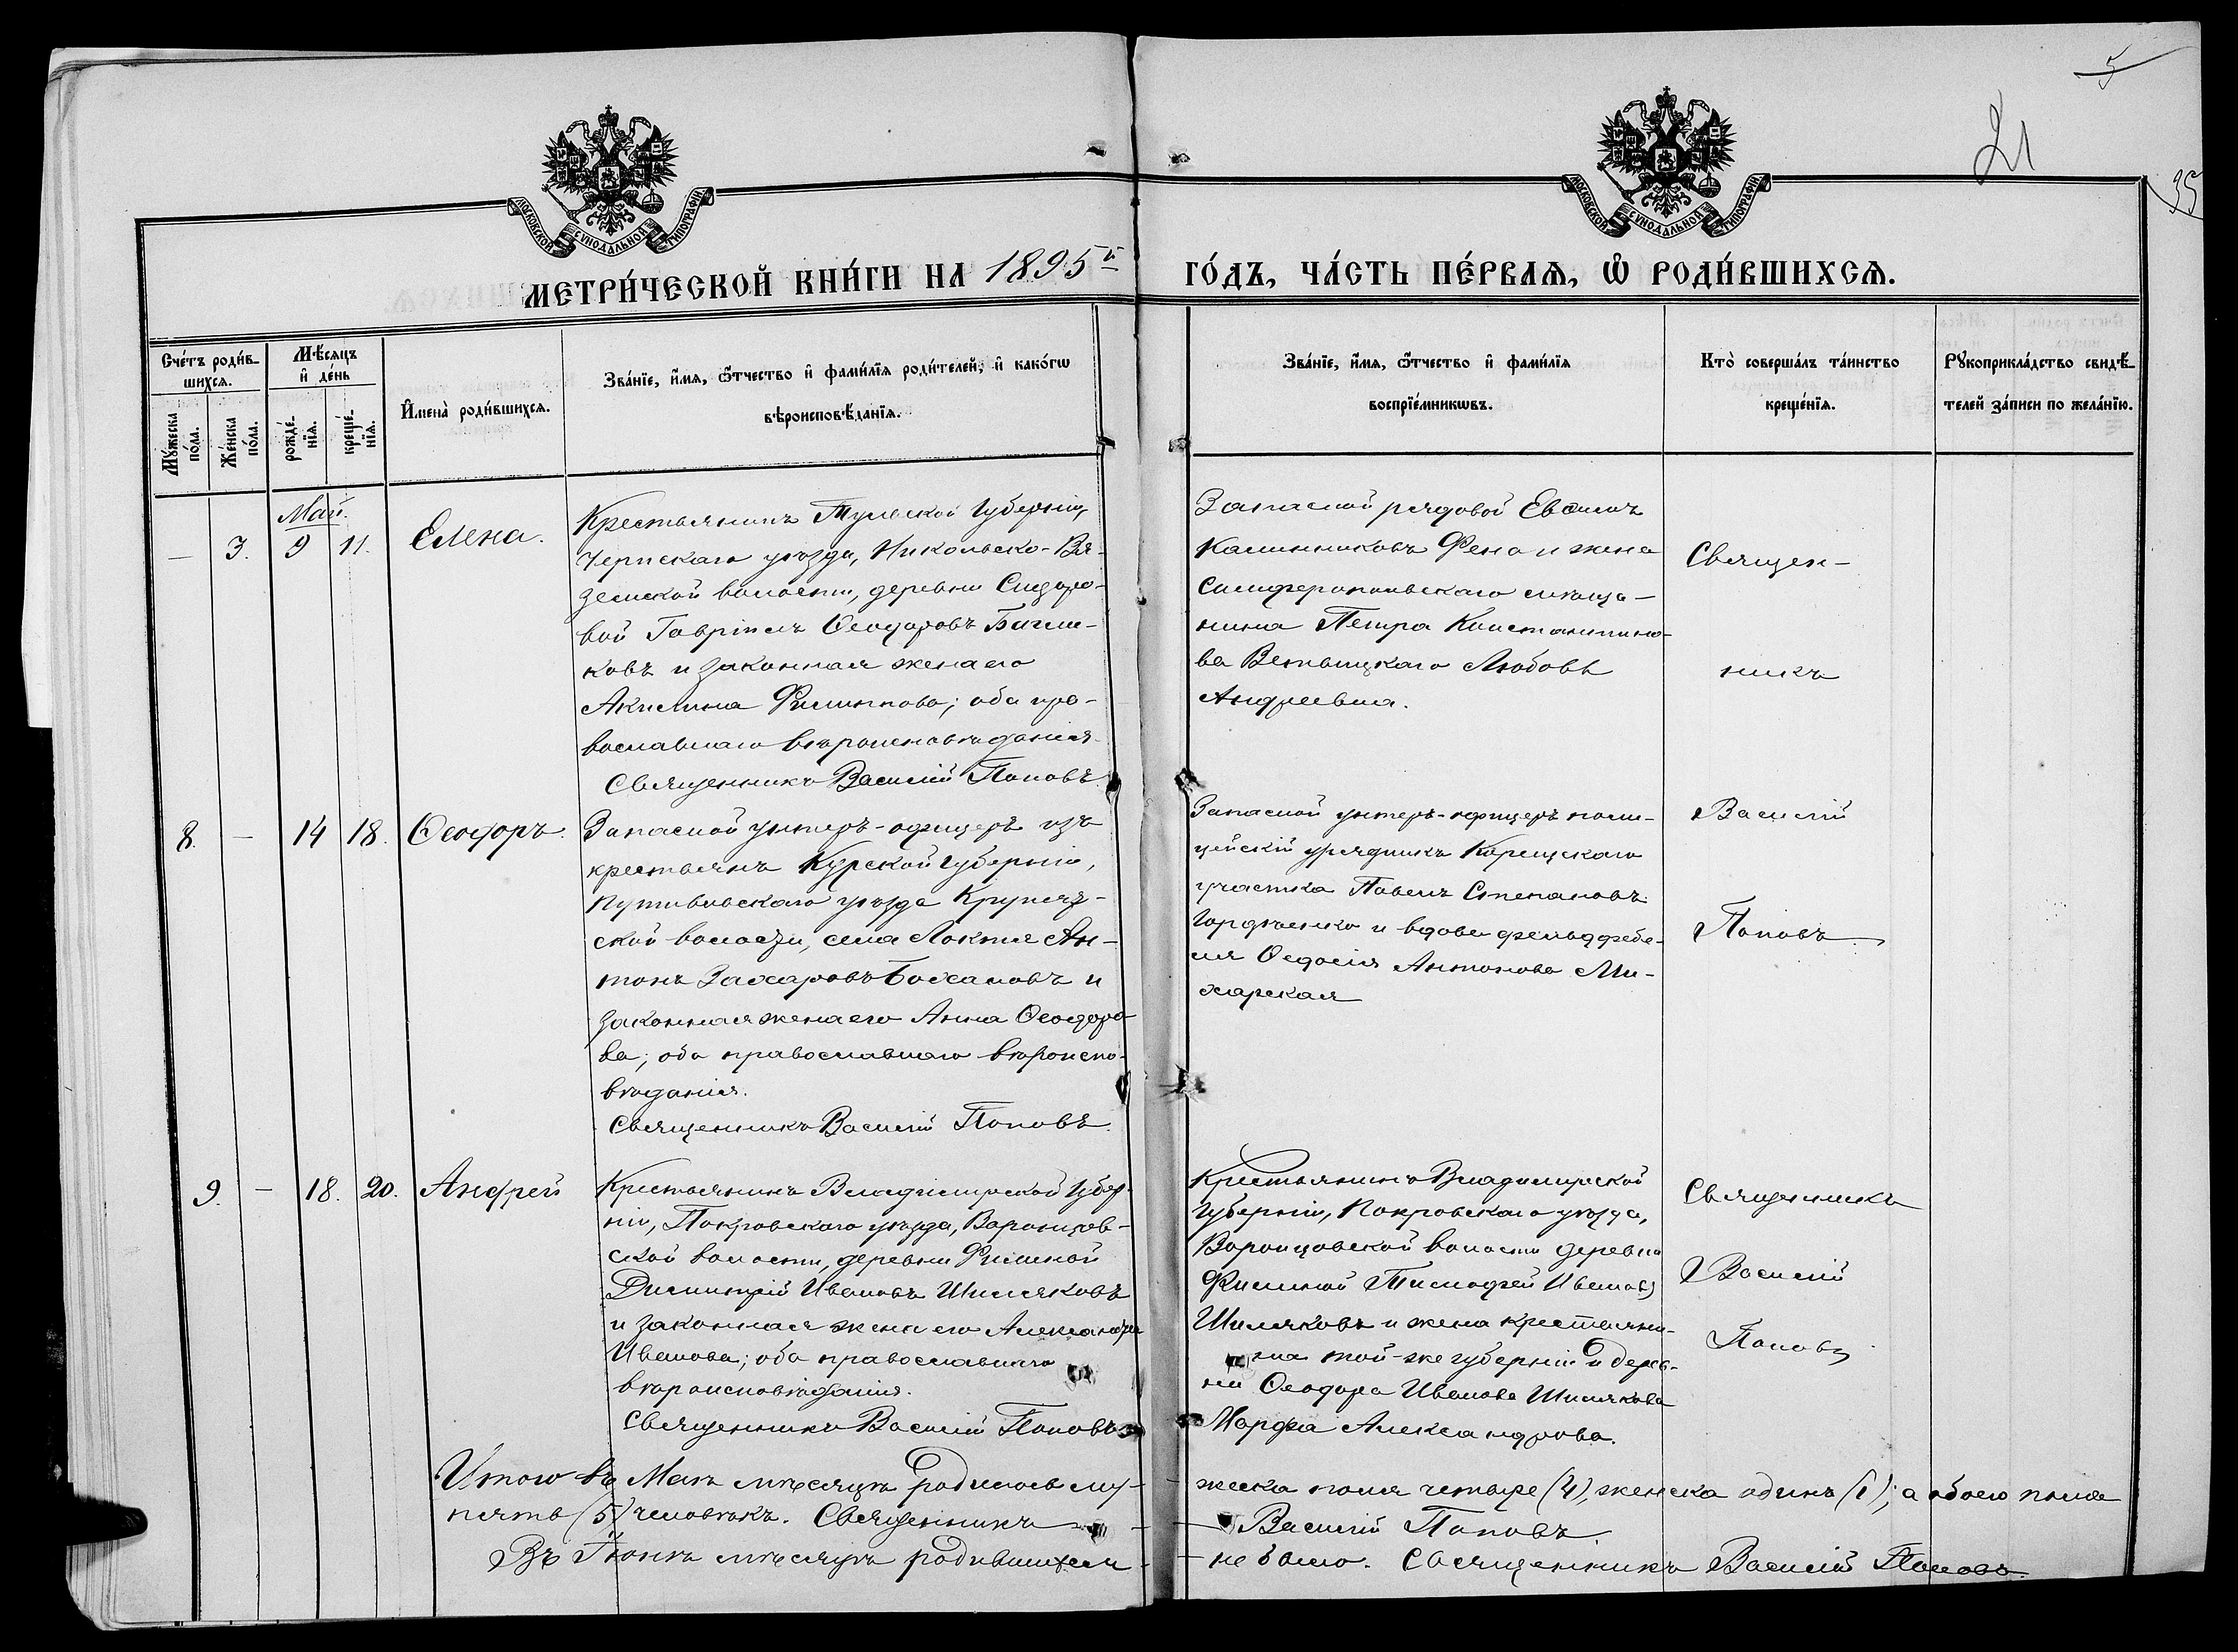 5
21
35
МОСКОВСКОЙ СУНОДАЛЬНОЙ ТИПОГРАФІИ
МОСКОВСКОЙ СУНОДАЛЬНОЙ ТИПОГРАФІИ
МЕТРИ́ЧЕСКОЙ КНИ́ГИ НА 1895й ГО́ДЪ, ЧА́СТЬ ПЕ́РВАѦ, Ѡ РОДИ́ВШИХСѦ.
Сче́тъ роди́в-
шихсѧ.
Мѣ́сѧцъ
и҆ де́нь
Мꙋ́жеска
по́ла.
Же́нска
по́ла.
рожде́-
нїѧ.
креще́-
нїѧ.
И҆мена̀ роди́вшихсѧ.
Зва́нїе, и҆́мѧ, ѻ҆́тчество и҆ фами́лїѧ роди́телей, и҆ како́гѡ
вѣроисповѣ́данїѧ.
Зва́нїе, и҆́мѧ, ѻ҆́тчество и҆ фами́лїѧ
воспрїе́мникѡвъ.
Кто̀ соверша́лъ та́инство
креще́нїѧ.
Рꙋкоприкла́дство свидѣ́-
телей за́писи по жела́нїю.
Май.
— 3. 9 11. Елена.
Крестьянинъ Тульской Губерніи,
Чернскаго уѣзда, Никольско-Вя-
земской волости, деревни Сидоро-
вой Гавріилъ Ѳеодоровъ
ковъ и законная жена его
Акилина Филиппова; оба пра-
вославнаго вѣроисповѣданія.
Священникъ Василій Поповъ.
Запасной рядовой
Калинниковъ и жена
Симферопольскаго мѣща-
нина Петра Константино-
ва Ветвицкаго Любовь
Андреевна.
Священ-
никъ
Василій
Поповъ.
8. — 14 18. Ѳеодоръ.
Запасной унтеръ-офицеръ изъ
крестьянъ Курской Губерніи,
Путивльскаго уѣзда Крупец-
кой волости, села Локтя Ан-
тонъ Захаровъ и
законная жена его Анна Ѳеодоро-
ва; оба православнаго вѣроиспо-
вѣданія.
Священникъ Василій Поповъ.
Запасной унтеръ-офицеръ поли-
цейскій урядникъ
участка Павелъ Степановъ
Гордѣенко и вдова фельдфебе-
ля Ѳедосія Антонова Ми-
харская
9. — 18. 20. Андрей
Крестьянинъ Владимірской Губер-
ніи, Покровскаго уѣзда, Воронцов-
ской волости, деревни Филиной
Димитрій Ивановъ Шишляковъ
и законная жена его Александра
Иванова; оба православнаго
вѣроисповѣданія.
Священникъ Василій Поповъ
Крестьянинъ Владимирской
Губерніи, Покровскаго уѣзда,
Воронцовской волости деревни
Филиной Тимофей Ивановъ
и жена крестьяни-
на той-же губерніи и дерев-
ни Ѳеодора Иванова
Марфа Александрова.
Священникъ
Василій
Поповъ
Итого въ Маѣ мѣсяцѣ родилось му- жеска пола четыре (4), женска одинъ (1); а обоего пола
пять (5) человѣкъ. Священникъ — Василій Поповъ.
Въ Іюнѣ мѣсяцѣ родившихся — не было. Священникъ Василій Поповъ.